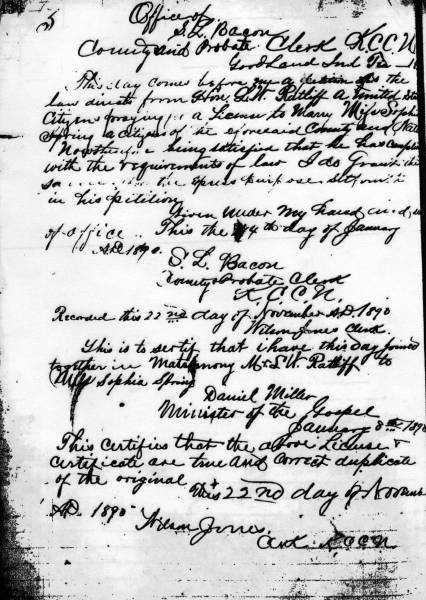 Office of
S. L. Bacon
County and Probate Clerk K.C.C.N
Goodland Ind Ter
This day comes before me a petition as the
law directs from Hon. L. W. Ratliff A United Sta
Citizen praying a License to Marry Miss Sophi
Spring a citizen of the aforesaid County and Nati
Now being satisfied that he has compli
with the requirements of law I do Grant the
sa for the express purpose set forth
in his petition
Given under my hand and
of office This the 4th day of January
A.D. 1890.
S. L. Bacon
County & Probate Clerk
K.C.C.N.
Recorded this 22nd day of November A.D. 1890
Wilson Jones Clerk.
This is to sertify that i have this day joined
together in Matrimony Mr L. W. Ratliff to
Miss Sophia Spring
Daniel Miller
Minister of the Gospel
January 8th 1890
This certifies that the above License &
certificate are true and correct duplicate
of the original
this 22nd day of Novemb
A.D. 1890
Wilson Jones.
Clerk K.C.C.N.